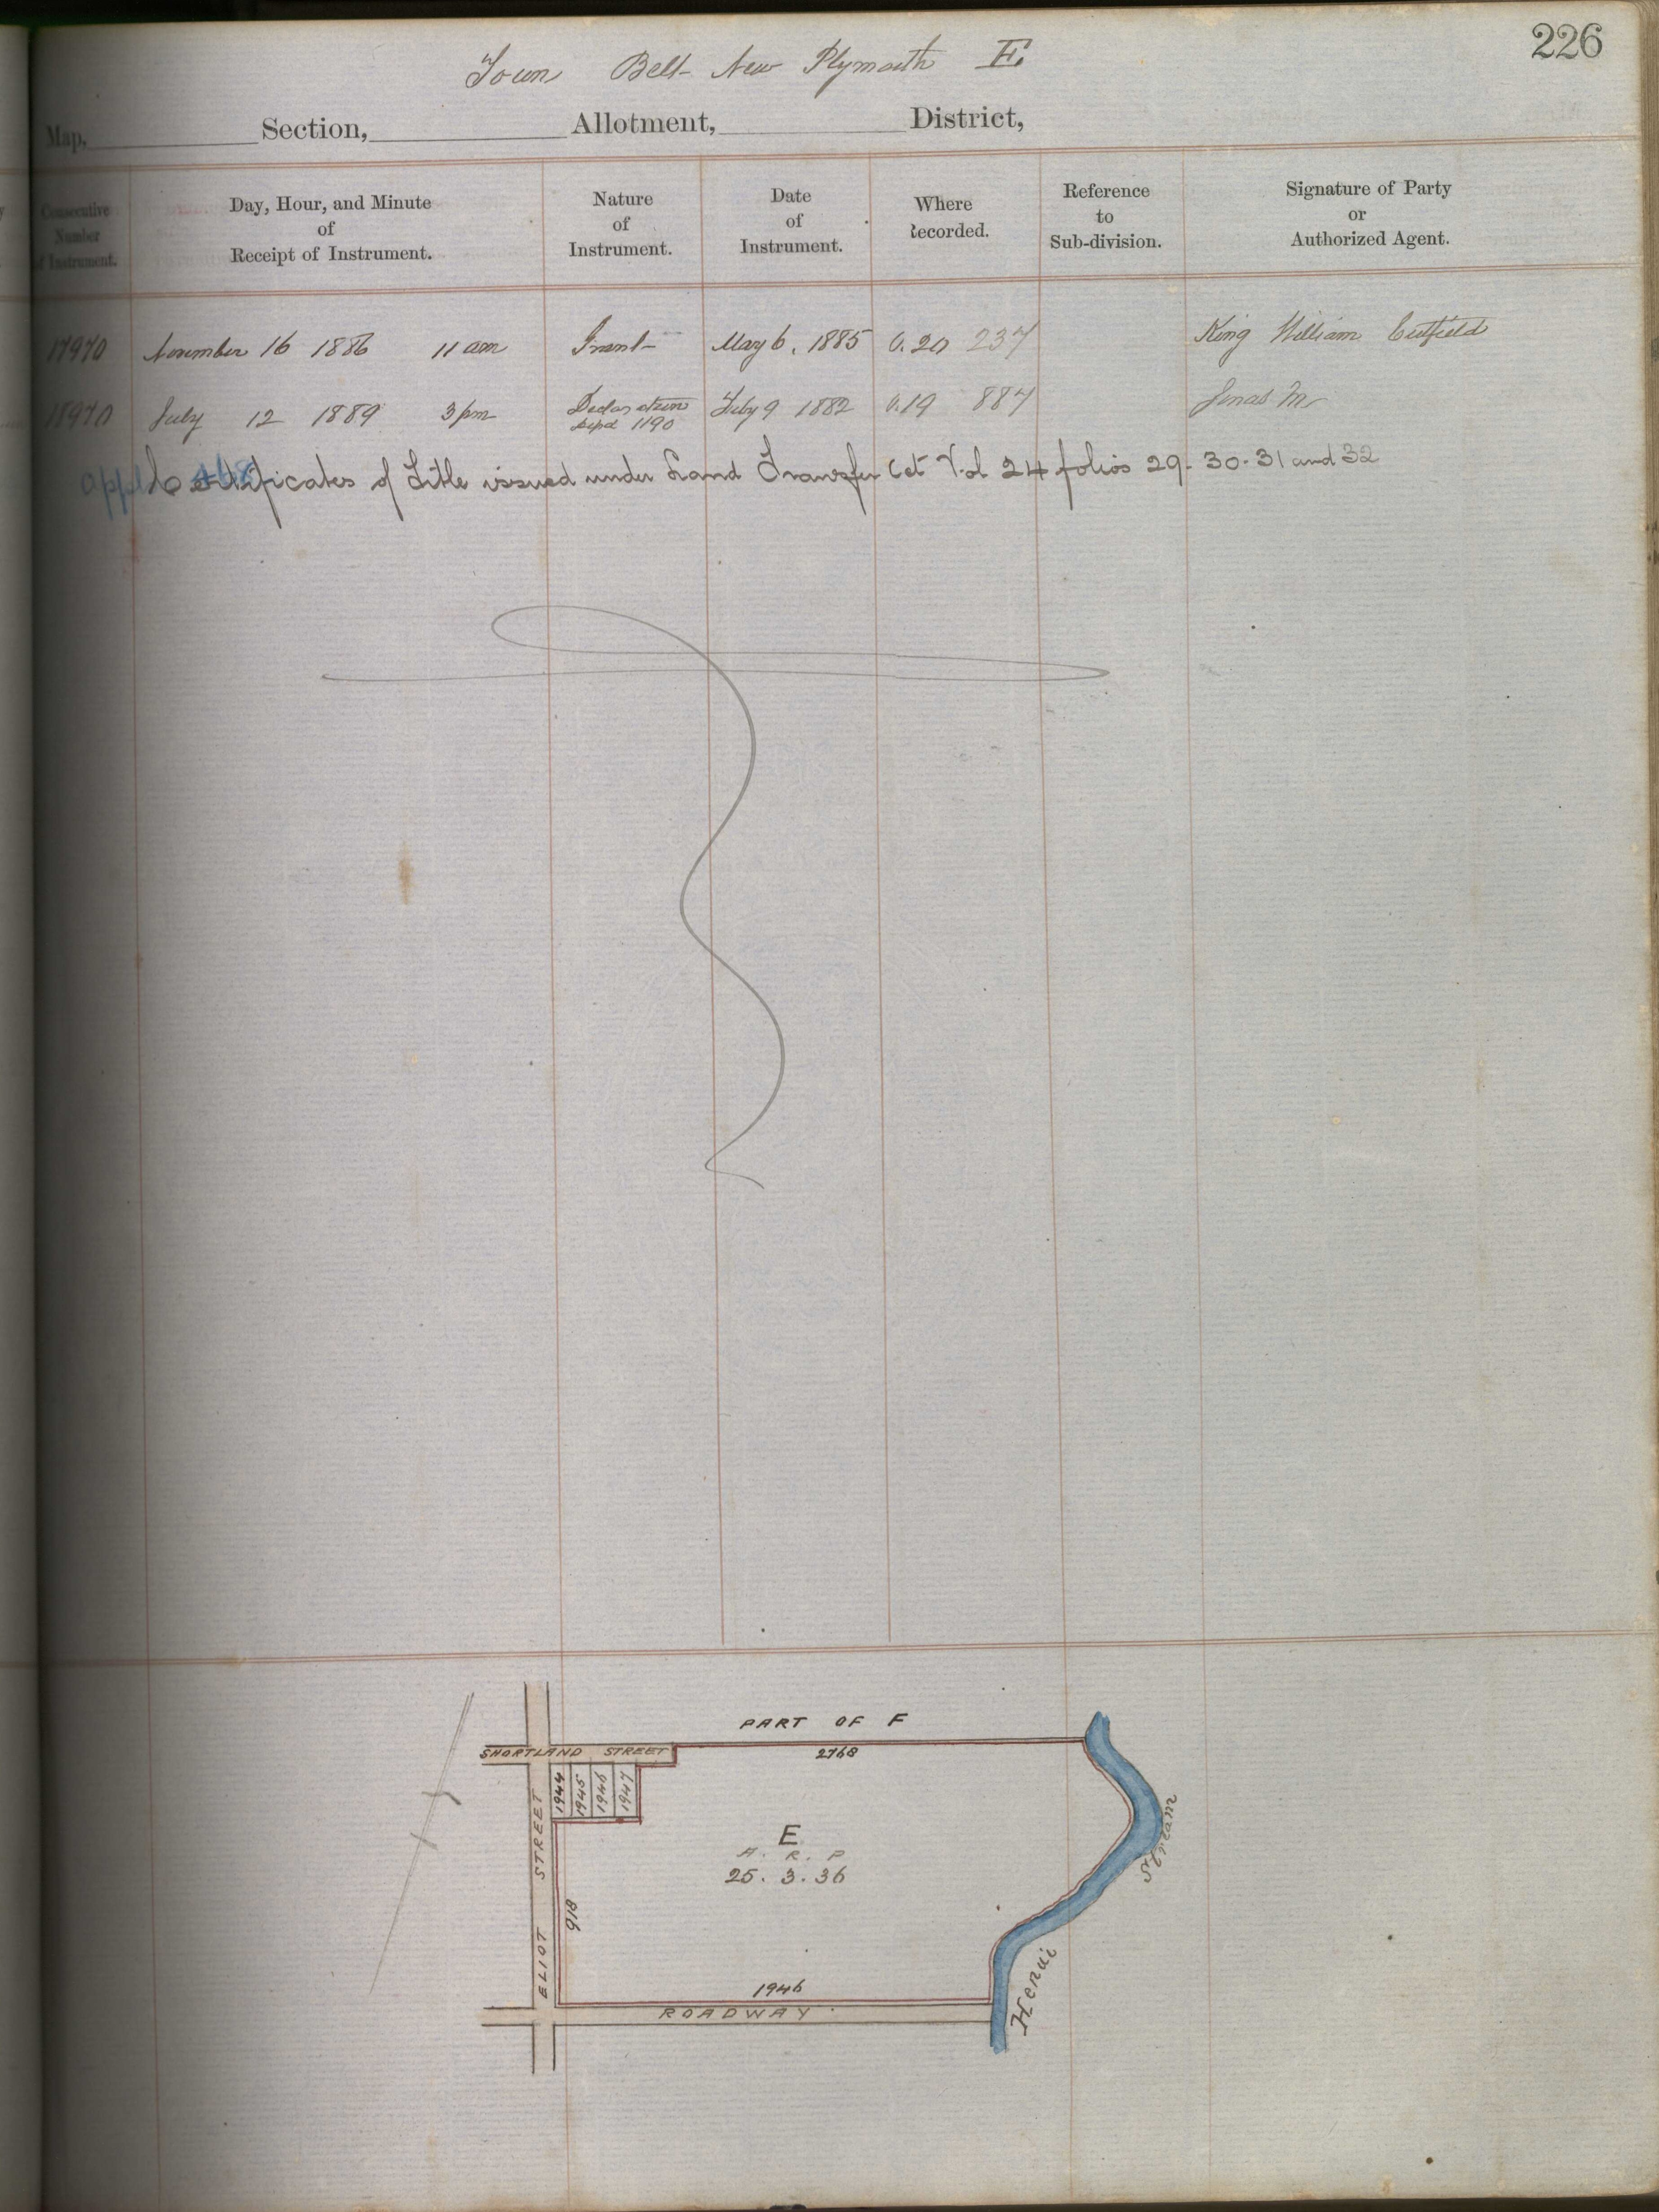 226
Town Belt New Plymouth E.
Map, Section, Allotment, District,
Consecutive Number of Instrument.
Day, Hour, and Minute of Receipt of Instrument.
Nature of Instrument.
Date of Instrument.
Where Recorded.
Reference to Sub-division.
Signature of Party or Authorized Agent.
17970 November 16 1886 11 am Grant May 6, 1885 C. 20 237 King William Cutfield
18970 July 12 1889 3 pm Declaration July 9 1882 D.19 884
1190
Certificates of Title issued under Land Transfer Act Vol 24 folios 29. 30. 31 and 32
PART OF F
SHORTLAND STREET
2768
1944
1945
1946
1947
ELIOT STREET
E
A. R. P
25. 3. 36
918
Stream
Henui
1946
ROADWAY